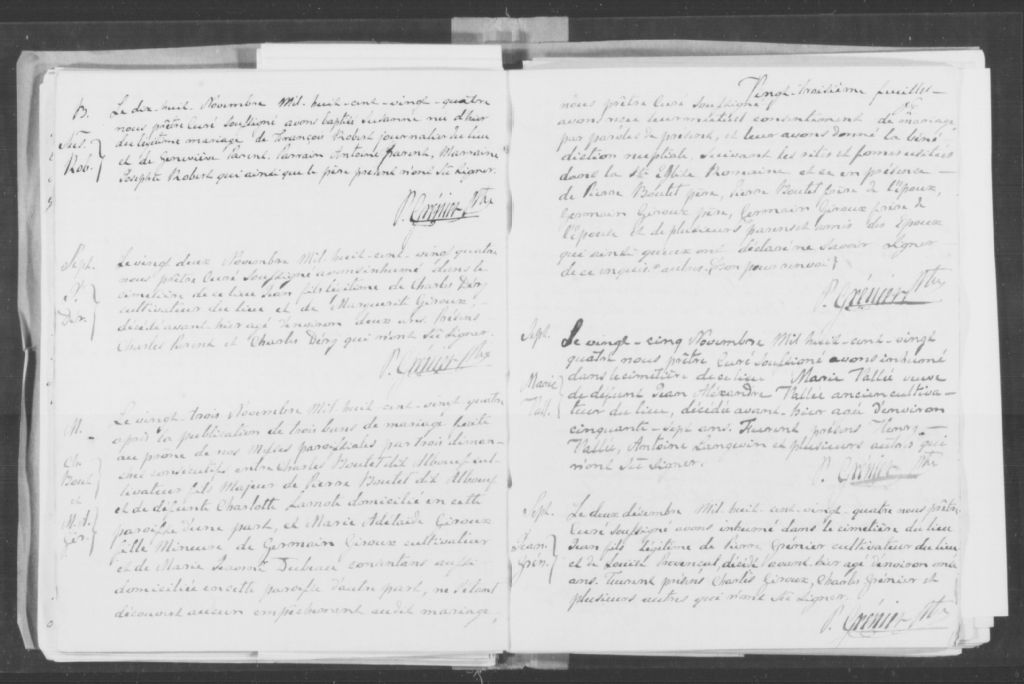 B.
Sus.
Rob.
Le dix-huit Novembre Mil-huit-cent-vingt-quatre
nous prêtre Curé soussigné avons baptisé Susanne née d'hier
du légitime mariage de François Robert journalier du lieu
et de Geneviève Parent. Parrain Antoine Parent, Marraine
Josephte Robert qui ainsi que le père présent n'ont su signer.
P. Grénier Ptre
Sept.
Jn
Déry
Le vingt deux Novembre Mil-huit-cent-vingt quatre
nous prêtre Curé soussigné avons inhumé dans le
cimetière de ce lieu Jean fils légitime de Charles Déry
cultivateur du lieu et de Marguerite Giroux
décédé avant hier agé d'environ deux ans. Présens
Charles Parent et Charles Déry qui n'ont su signer.
P. Grénier Ptre
M.
Ch.
Bout.
et
M. A.
Gir.
Le vingt trois Novembre Mil-huit-cent-vingt quatre
après la publication de trois bans de mariage faite
au prone de nos Messes paroissiales par trois diman-
ches consécutifs entre Charles Boutet dit Lebœuf cul-
tivateur fils Majeur de Pierre Boutet dit Lebœuf
et de défunte Charlotte Lamote domicilié en cette
paroisse d'une part, et Marie Adelaide Giroux
fille Mineure de Germain Giroux cultivateur
et de Marie Jeanne Dubeau consentans aussi
domiciliée en cette paroisse d'autre part, ne s'étant
découvert aucun empêchement au dit mariage,
Vingt-troisième feuillet
nous prêtre Curé soussigné
avons reçu leur mutuel consentement de mariage
par paroles de présent, et leur avons donné la béné
diction nuptiale, suivant les rites et formes usitées
dans la Ste Eglise Romaine et ce en présence
de Pierre Boutet père, Pierre Boutet frère de l'époux,
Germain Giroux père, Germain Giroux frère de
l'épouse et de plusieurs parens et amis des époux
qui ainsi qu'eux ont déclaré ne savoir signer
de ce requis
P. Grénier Ptre
Sept.
Marie
Val.
Le vingt-cinq Novembre Mil huit-cent-vingt
quatre nous prêtre Curé soussigné avons inhumé
dans le cimetière de ce lieu Marie Vallée veuve
de défunt Jean Alexandre Vallée ancien cultiva-
teur du lieu, décédée avant-hier agée d'environ
cinquante-sept ans. Furent présens Henry
Vallée, Antoine Langevin et plusieurs autres qui
n'ont su signer.
P. Grénier Ptre
Sept.
Jean
Grén.
Le deux décembre Mil-huit-cent-vingt-quatre nous prêtre
Curé soussigné avons inhumé dans le cimetière du lieu
Jean fils légitime de Pierre Grénier cultivateur du lieu
et de Louise Provençal, décédé avant-hier agé d'environ onze
ans. Furent présens Charles Giroux, Charles Grénier et
plusieurs autres qui n'ont su signer.
P. Grénier Ptre